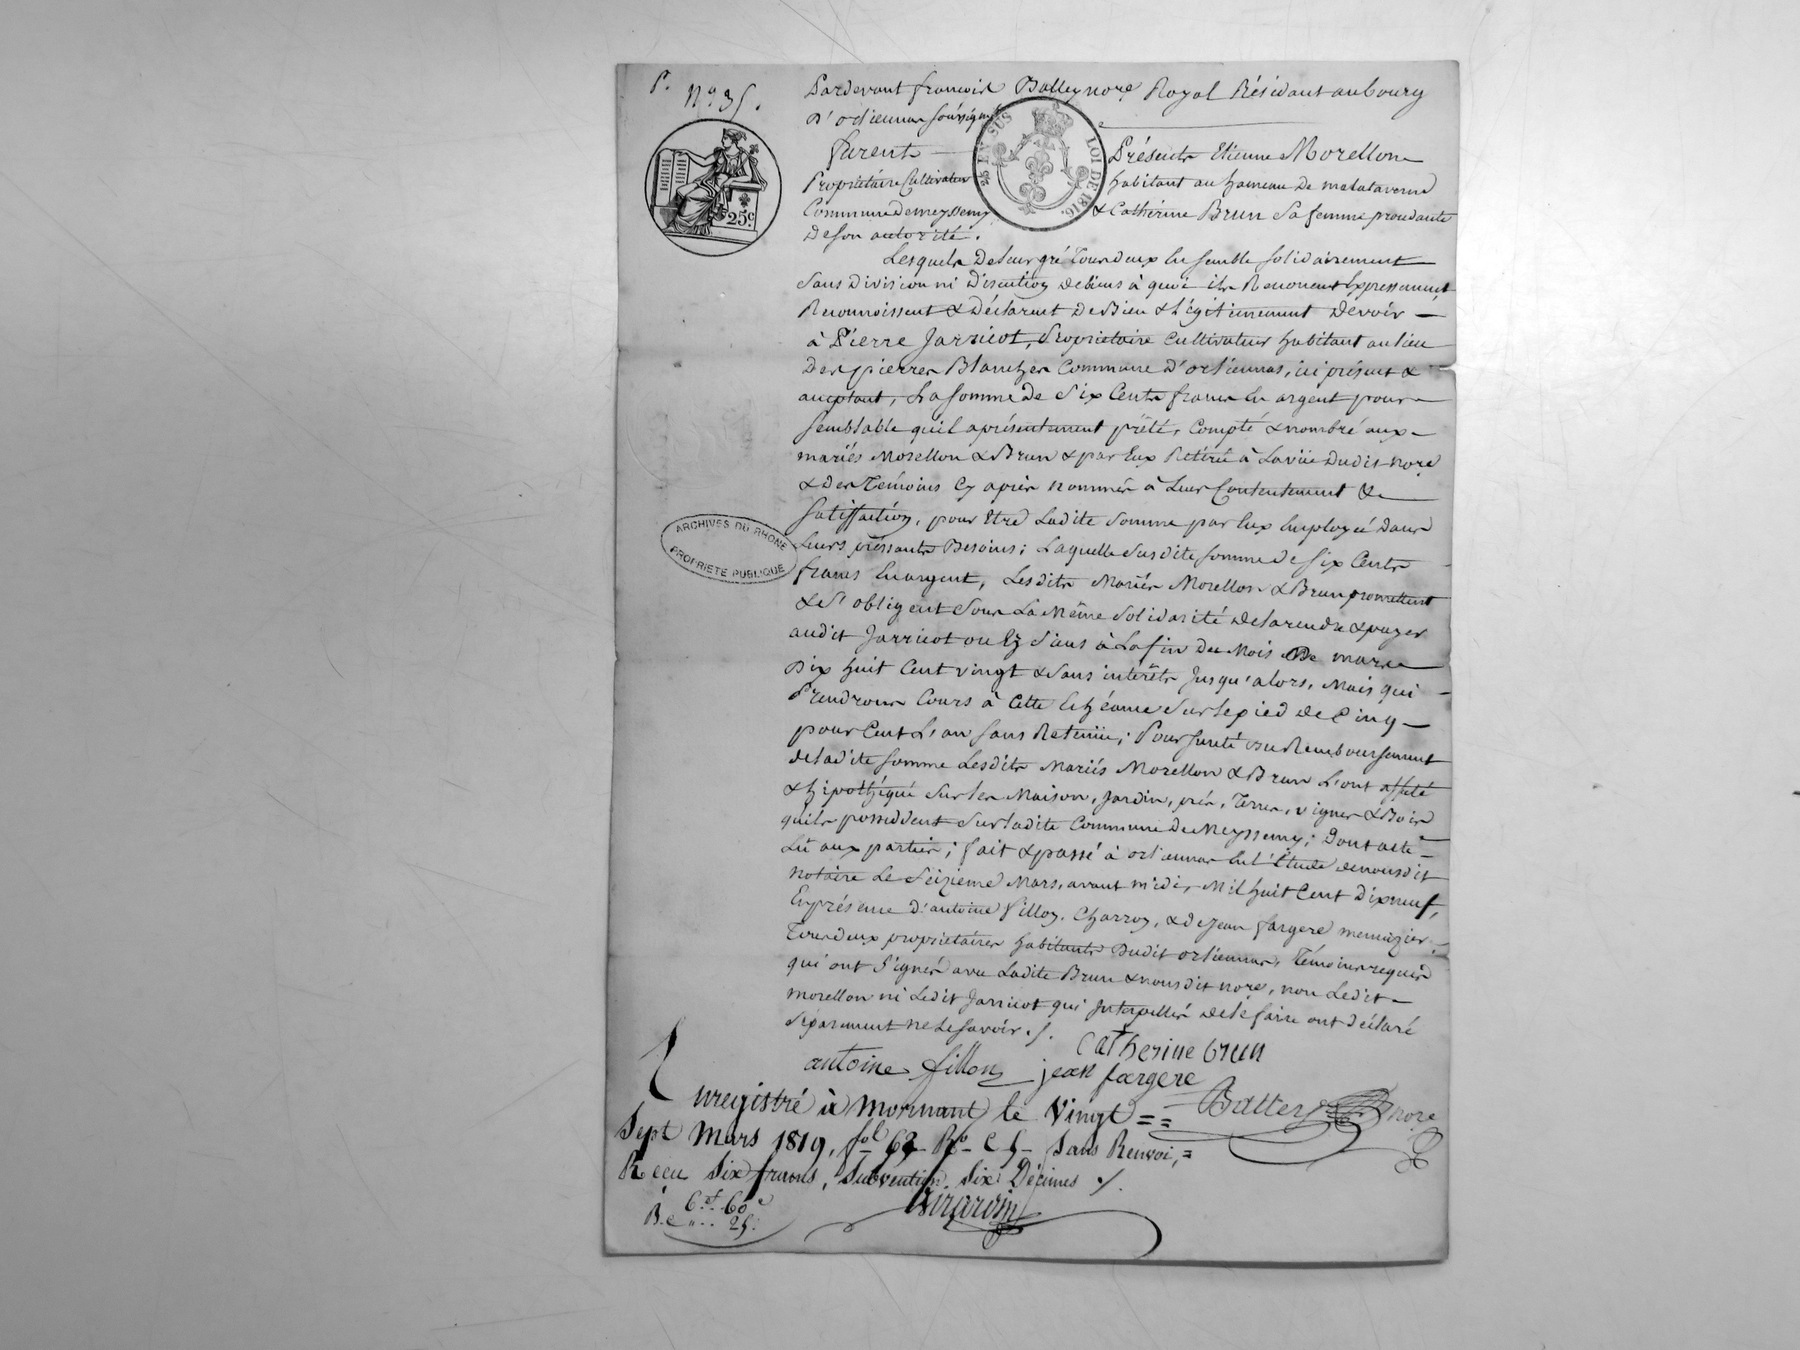 P. N.° 35.
Pardevant françois Balley nore Royal Résidant au bourg
D'orliennas soussigné
furent Présents Etienne Morellon
Propriétaire Cultivateur habitant au hameau De malataverne
Commune de meyssemy & Cathérine Brun Sa femme procédante
De son autorité.
Lesquels De leur gré Tous deux Ensemble solidairement
Sans Division ni Discution de biens à quoi ils Renoncent Expressement
Reconnoissent & Déclarent De Bien & Légitimement Devoir
à Pierre Jarricot, Proprietaire Cultivateur habitant au lieu
Des pierres Blanches Commune D'orliennas, ici présent &
acceptant, La somme De Six Cents francs En argent pour
semblable qu'il a présentement prêté, Compté & nombré aux
mariés Morellon & Brun & par Eux Rétiré à La vüe Dudit nore
& des Témoins Cy après nommés à Leur Contentement &
Satisfaction, pour Etre Ladite Somme par Eux Employée Dans
Leurs pressants Besoins; Laquelle Susdite somme de Six Cents
francs En argent, Lesdits Mariés Morellon & Brun promettent
& S'obligent Sous La Même Solidarité de la rendre & payer
audit Jarricot ou Es Siens à La fin du Mois De mars
Dix huit Cent vingt & Sans intérêts Jusqu'alors, Mais qui
Prendrons Cours à Cette Echéance Sur le pied de Cinq
pour Cent L'an sans Retenüe; Pour sureté du Remboursement
de ladite somme Lesdits Mariés Morellon & Brun L'ont affecté
& hipothéqué Sur les Maison, Jardin, prés, Terres, vignes & Bois
qu'ils possedent Sur ladite Commune de Meyssemy; Dont acte
Lû aux parties; fait & passé à orliennas En l'Étude de nousdit
notaire Le Seizieme Mars, avant midi, Mil huit Cent Dix neuf,
En présence D'antoine fillon, Charron, & de Jean fargere menuizier
Tous deux proprietaires habitants Dudit orliennas, Témoins requis
qui ont Signés avec Ladite Brun & nousdit nore, non Ledit
morellon ni Ledit Jarricot qui Interpellés de le faire ont Déclaré
Séparement ne Le Savoir ./.
Catherine brun
antoine fillon jean fargere
Balley nore
Enregistré à Mornant le Vingt
Sept Mars 1819, fol 63 Ro C 5 Sans Renvoi,
Recu Six francs, Subvention Six Décimes ./.
Girardin
6f. 60c
25.
25c.
25 EN SUS LOI DE 1816.
ARCHIVES DU RHONE
PROPRIETE PUBLIQUE